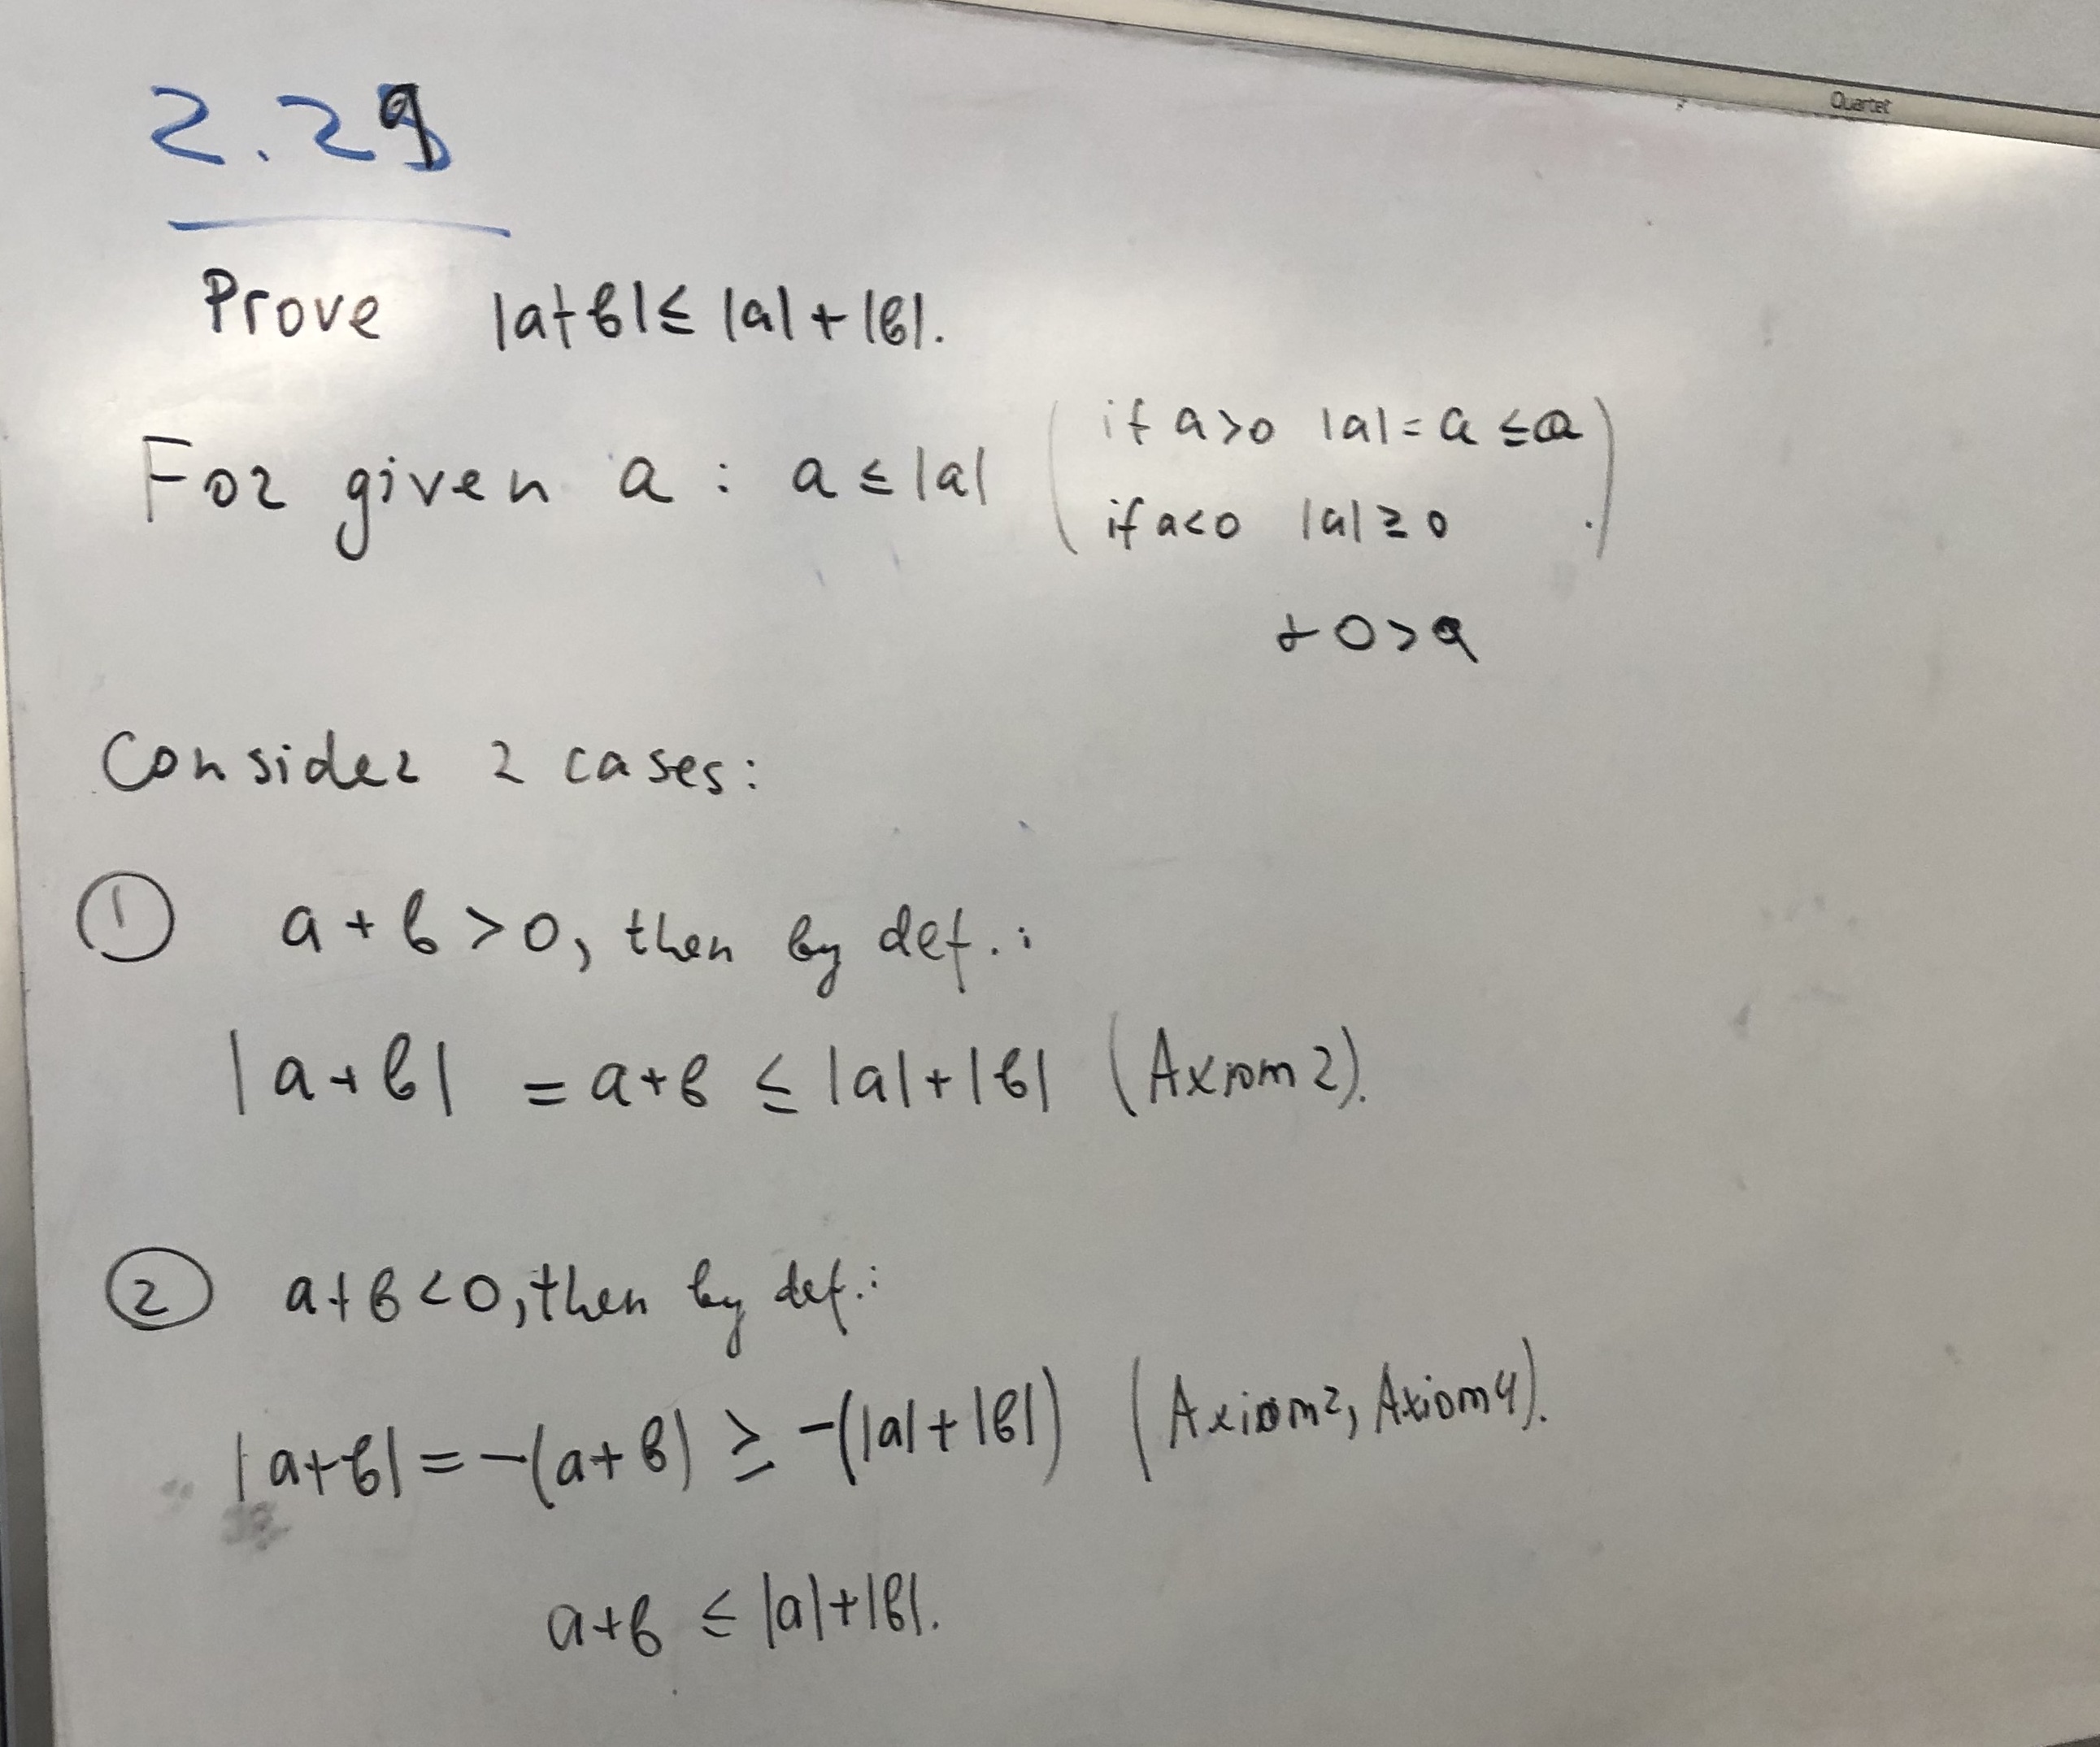 Quartet
2.29
Prove |a+b| ≤ |a| + |b|.
For given a : a ≤ |a| ( if a>0 |a| = a ≤ a
if a<0 |a| ≥ 0 . )
+ 0 > a
Consider 2 cases:
① a + b > 0, then by def.:
|a+b| = a+b ≤ |a|+|b| (Axiom 2).
② a+b < 0, then by def.:
|a+b| = -(a+b) ≥ -(|a|+|b|) (Axiom 2, Axiom 4).
a+b ≤ |a|+|b|.